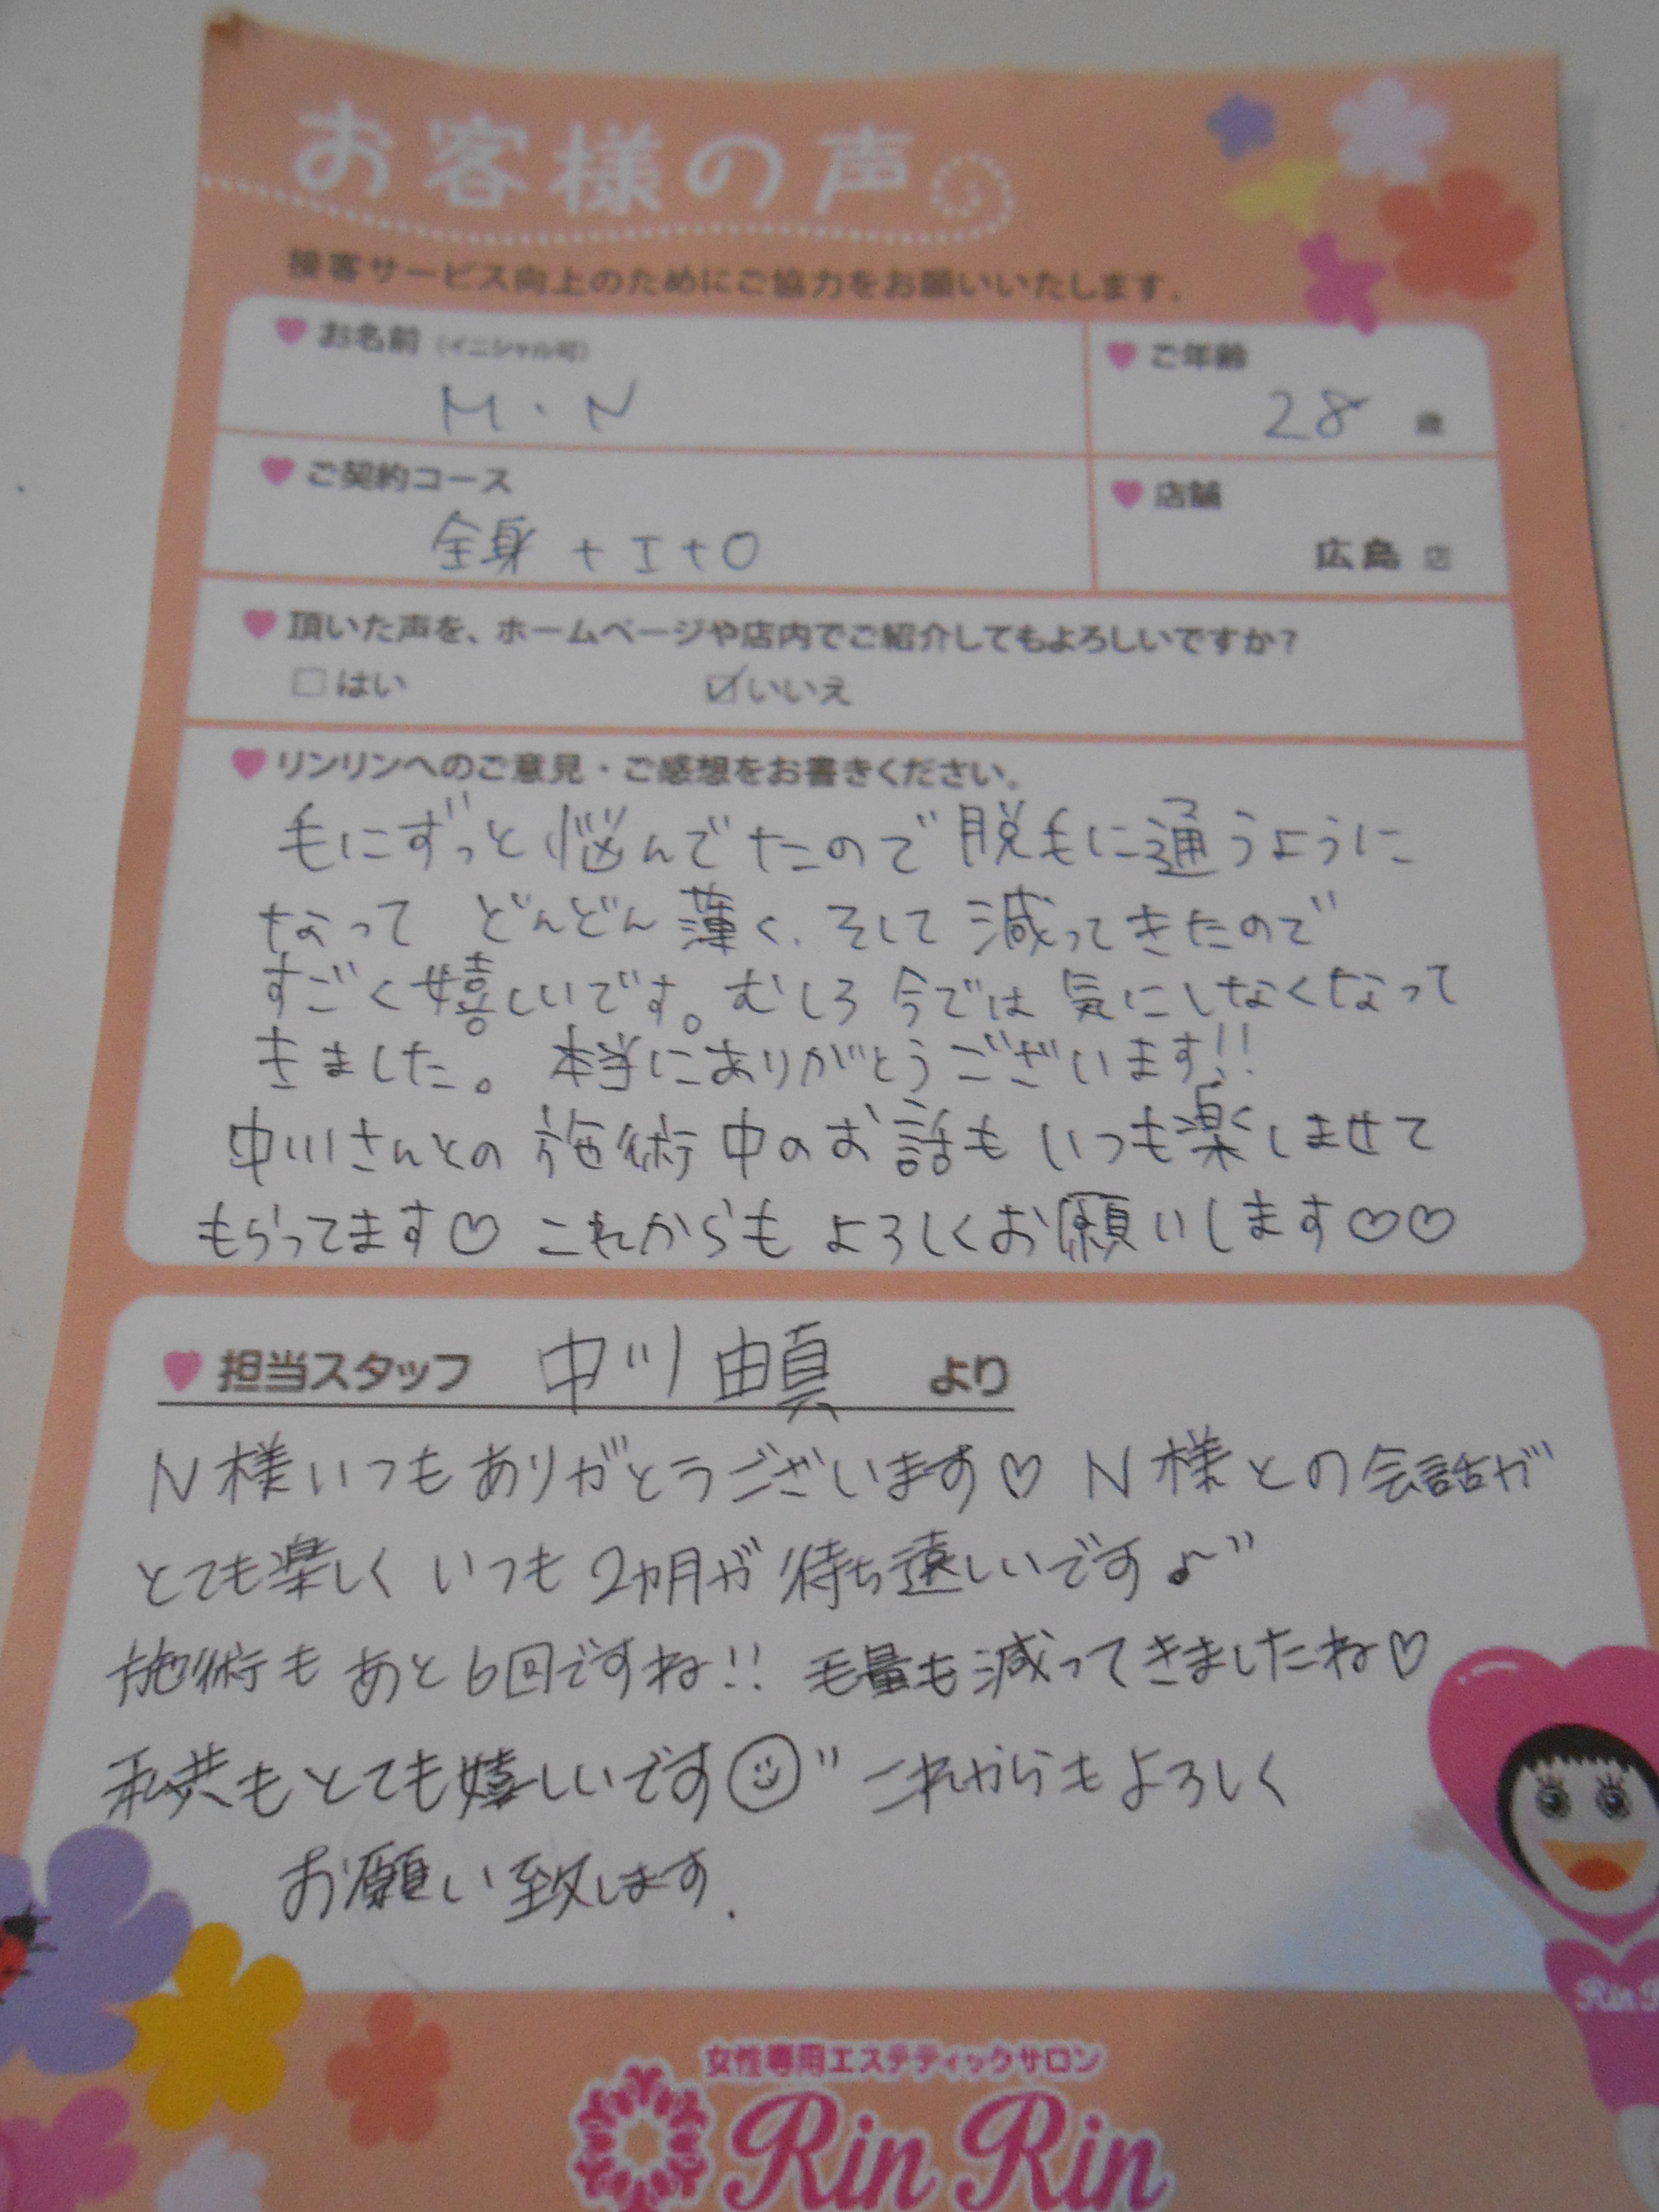 お客様の声
接客サービス向上のためにご協力をお願いいたします。
お名前(イニシャル可)
M・N
ご年齢
28 歳
ご契約コース
全身 + I + O
店舗
広島 店
頂いた声を、ホームページや店内でご紹介してもよろしいですか?
□はい ☑いいえ
リンリンへのご意見・ご感想をお書きください。
毛にずっと悩んでたので脱毛に通うように
なって どんどん薄く、そして減ってきたので
すごく嬉しいです。むしろ今では気にしなくなって
きました。本当にありがとうございます!!
中川さんとの施術中のお話もいつも楽しませて
もらってます♡ これからもよろしくお願いします♡♡
担当スタッフ 中川 由真 より
N様いつもありがとうございます♡ N様との会話が
とても楽しく いつも2ヵ月が待ち遠しいです♪
施術もあと6回ですね!! 毛量も減ってきましたね♡
私共もとても嬉しいです☺ これからもよろしく
お願い致します.
女性専用エステティックサロン
Rin Rin